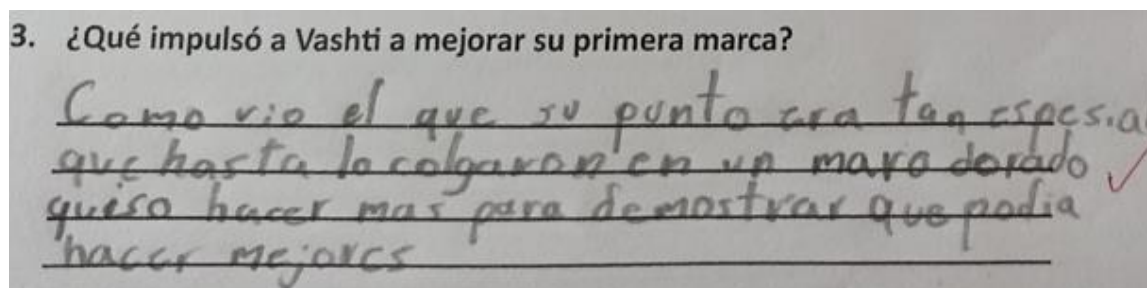 3. ¿Qué impulsó a Vashti a mejorar su primera marca?
Como vio el que su punto era tan espesia
que hasta lo colgaron en un maro dorado
quiso hacer mas para demostrar que podia
hacer mejores